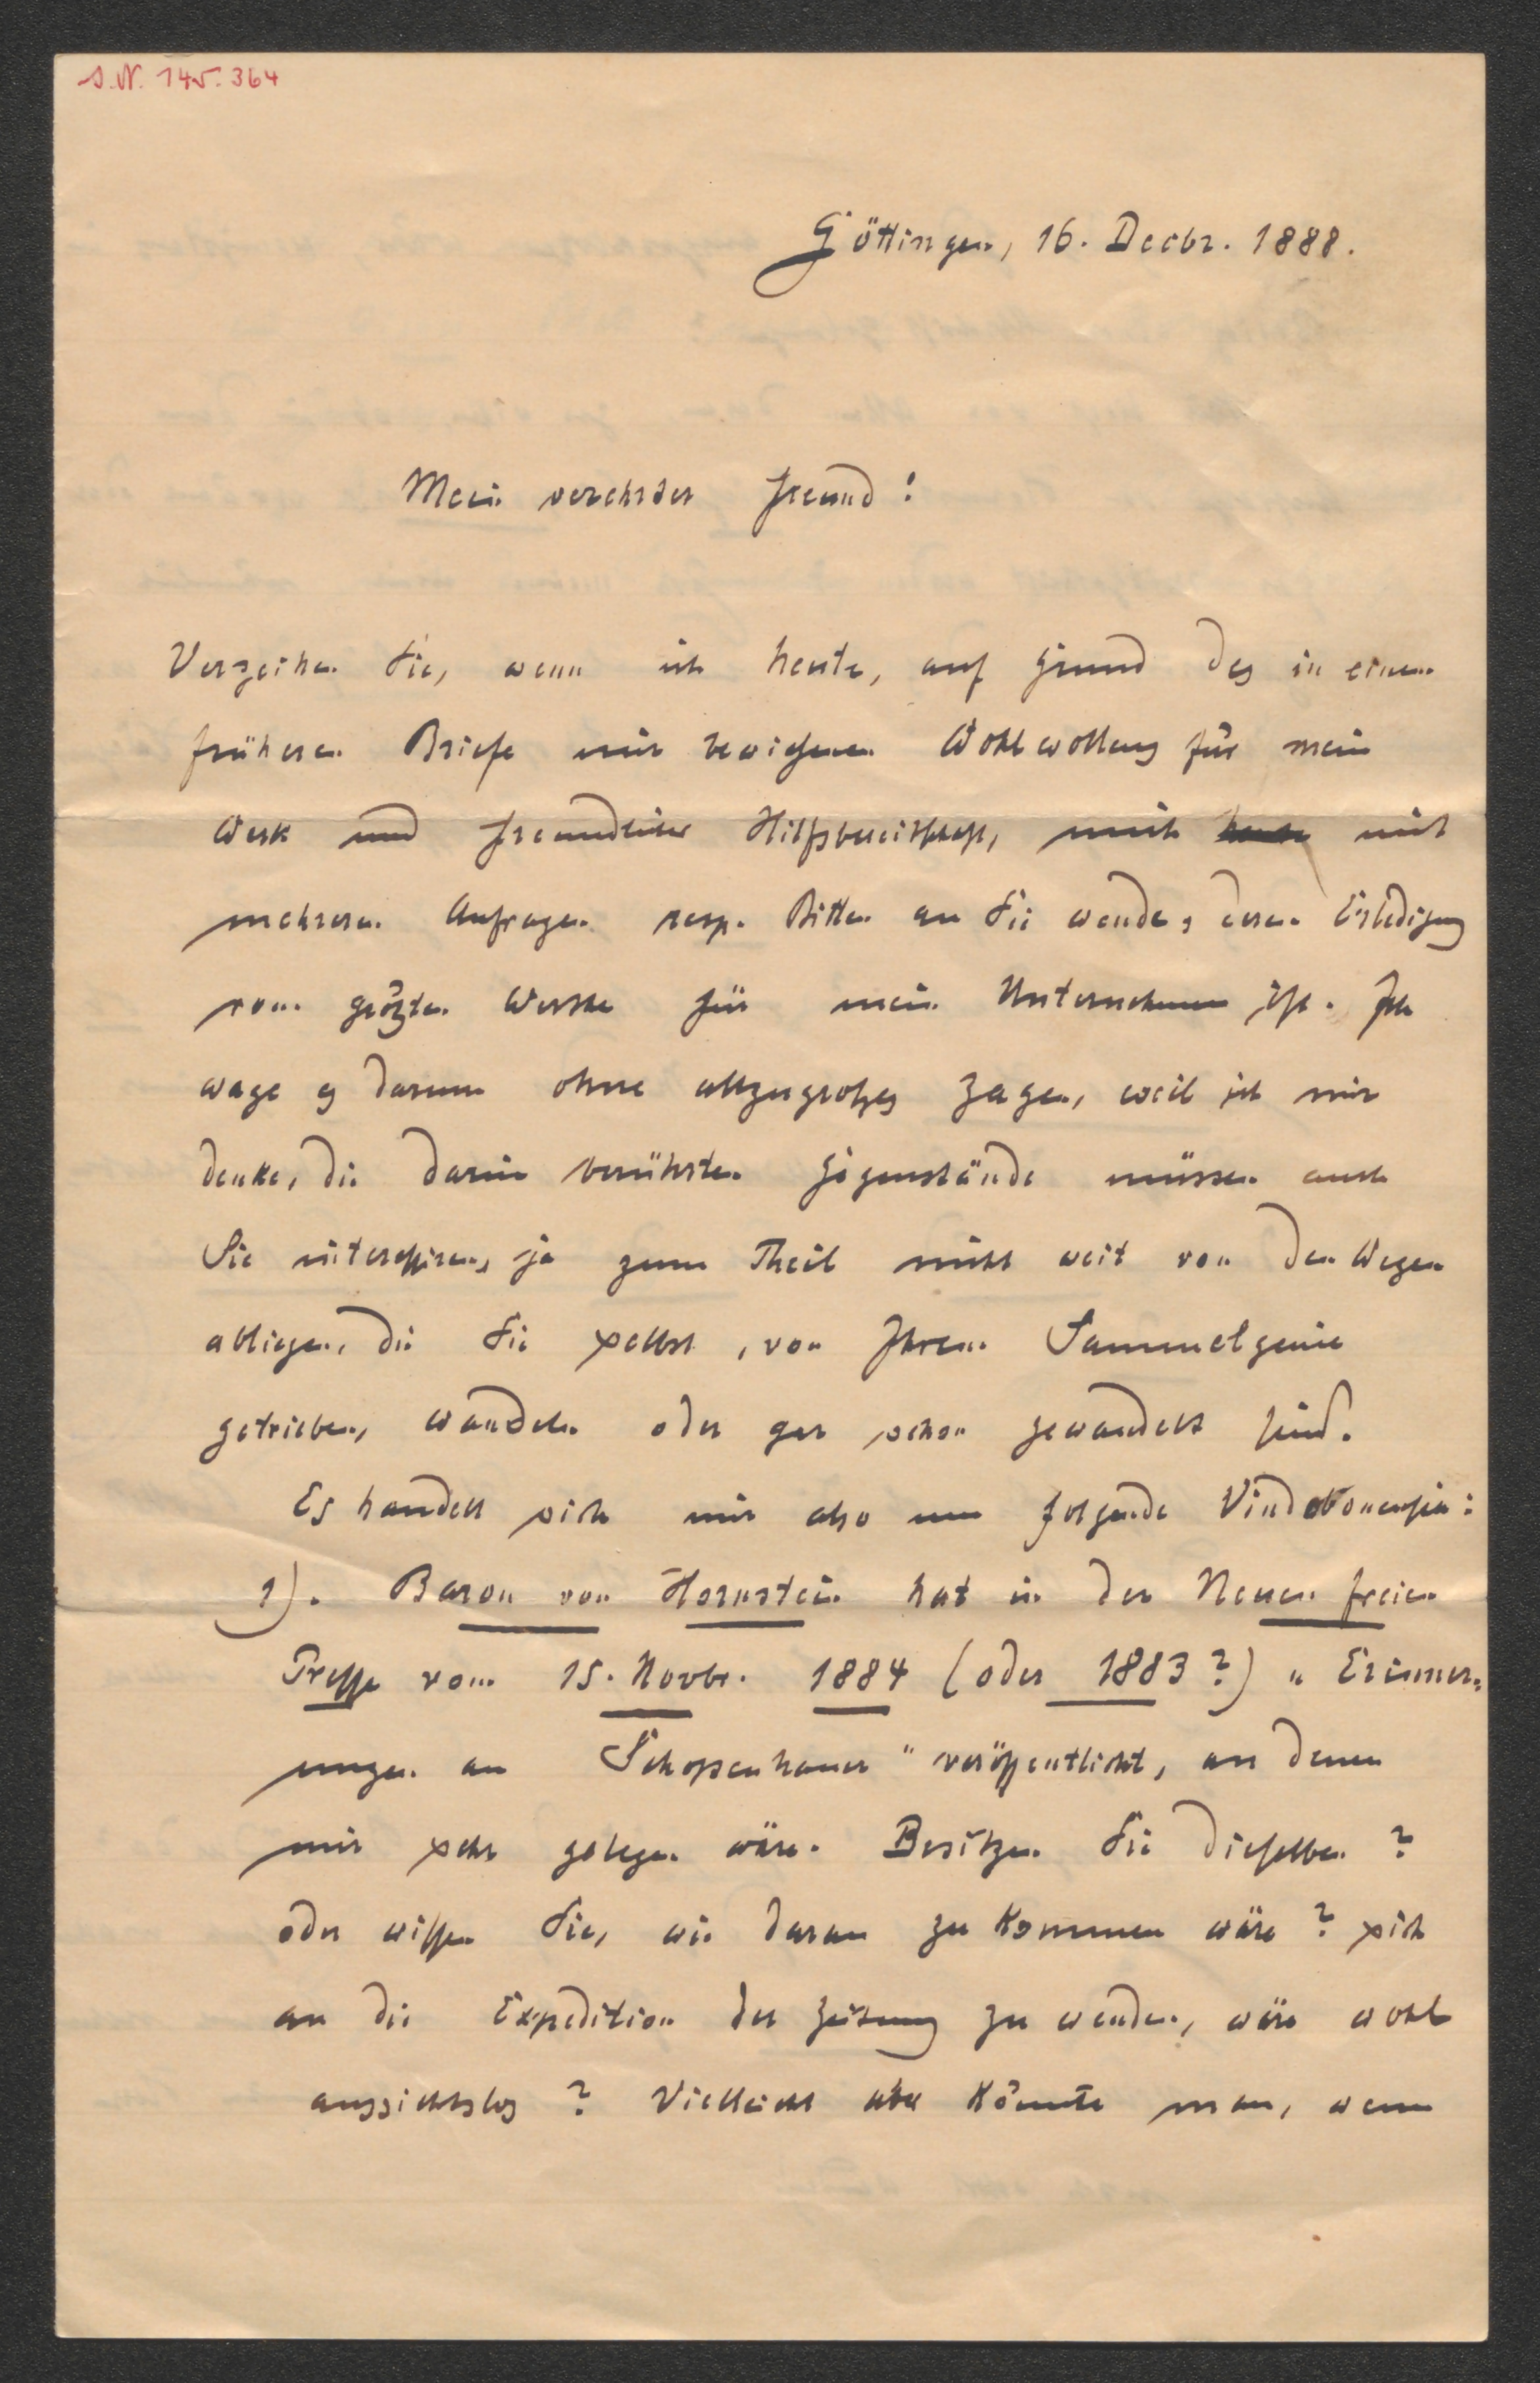 I.N. 145.364
Göttingen, 16. Decbr. 1888.
Mein verehrter Freund!
Verzeihen Sie, wenn ich heute, auf Grund des in einem
früheren Briefe mir bewiesenen Wohlwollens für mein
Werk und freundlicher Hilfsbereitschaft, mich heute mit
mehreren Anfragen resp. Bitten an Sie wende, deren Erledigung
vom größten Werthe für mein Unternehmen ist. Ich
wage es darum ohne allzugroßes Zagen, weil ich mir
denke, die darin berührten Gegenstände müssen auch
Sie interessiren, ja zum Theil nicht weit von den Wegen
abliegen, die Sie selbst, von Ihrem Sammelgenie
getrieben, wandeln oder gar schon gewandelt sind.
Es handelt sich mir also um folgende Vindobonensia:
1). Baron von Hornstein hat in der Neuen freien
Presse vom 15. Novbr. 1884 (oder 1883?) "Erinner-
ungen an Schopenhauer" veröffentlicht, an denen
mir sehr gelegen wäre. Besitzen Sie dieselben?
oder wissen Sie, wie daran zu kommen wäre? sich
an die Expedition der Zeitung zu wenden, wäre wohl
aussichtslos? Vielleicht aber könnte man, wenn